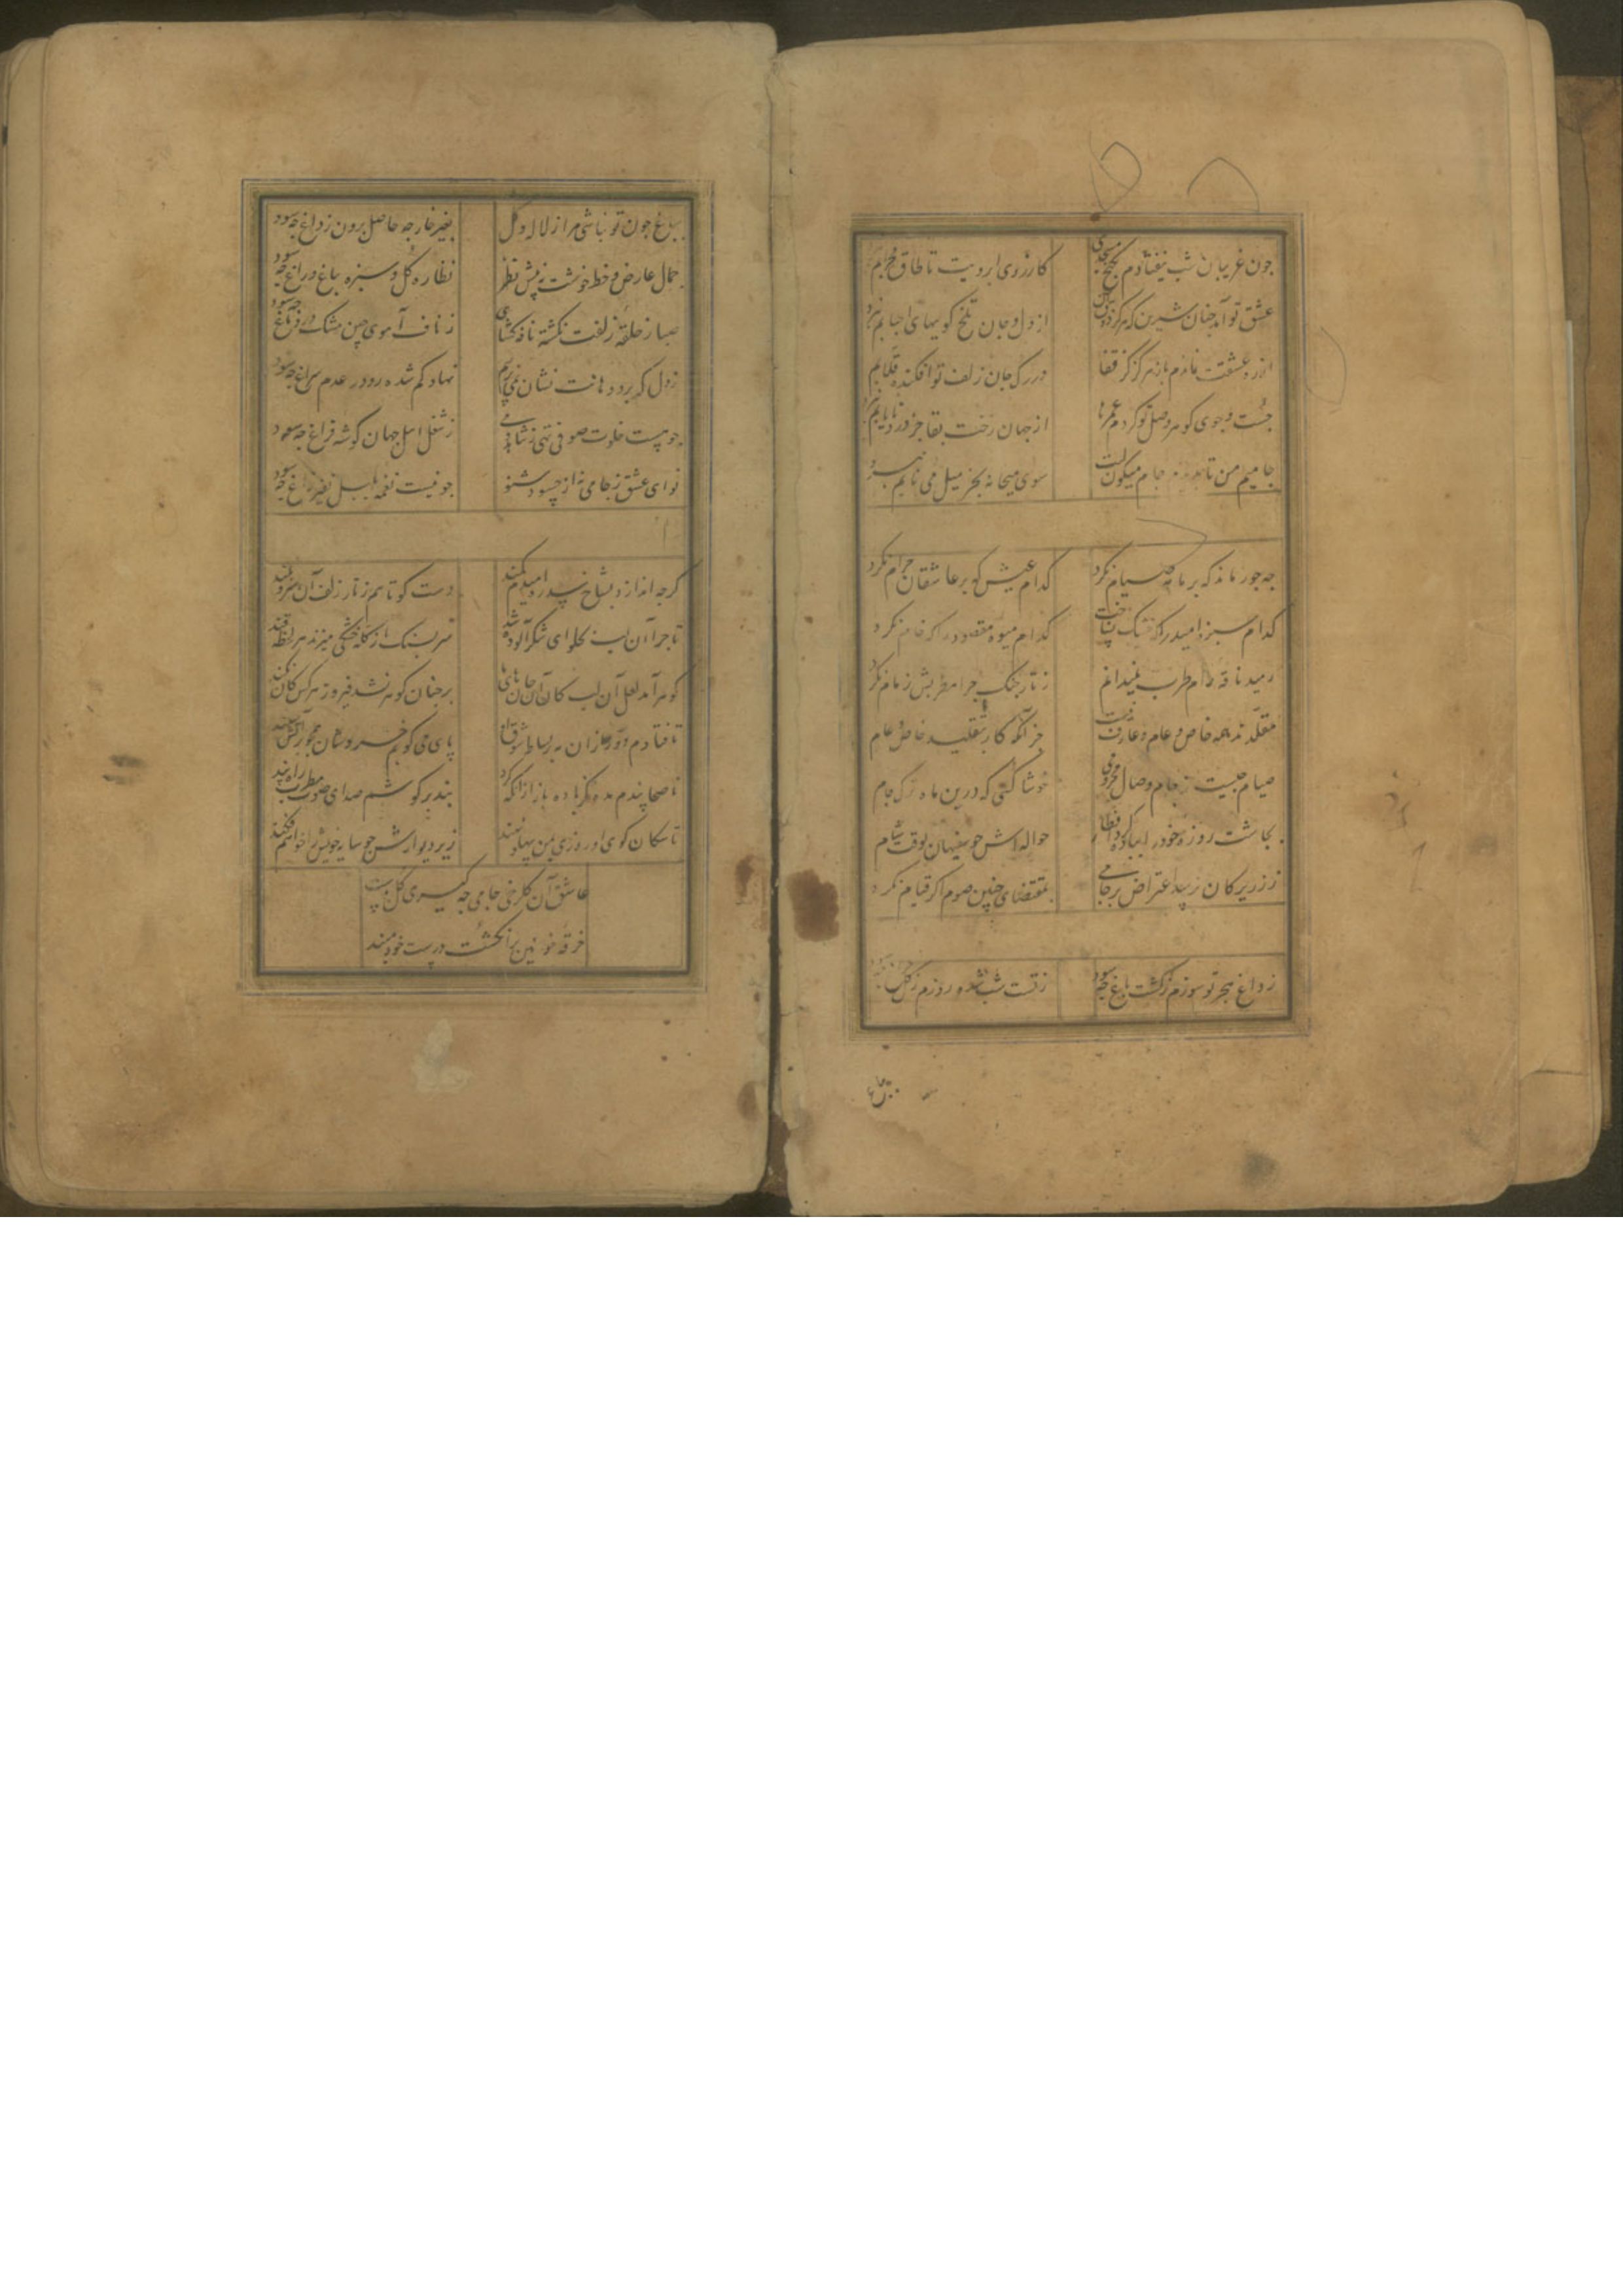 چون غریبان شب نیفتادم بکنج مسجدی کارزوی ابرویت تا طاق محرابم نبرد
عشق تو آمد چنان شیرین که هرگز ذوق آن از دل و جان تلخ گوییهای احبابم نبرد
از ره عشقت نماندم باز هرگز کز قفا در رگ جان زلف تو افکنده قلابم نبرد
جست و جوی گوهر وصل تو کردم عمرها از جهان رخت بقا جز در نایابم نبرد
جامیم من تا جام میگون لبت سوی میخانه بجز میل می نابم نبرد
چه جور ماند که بر ما مه صیام نکرد کدام عیش که بر عاشقان حرام نکرد
کدام سبزه امید را که خشک نساخت کدام میوه مقصود را که خام نکرد
رمید ناقه رام طرب نمیدانم ز تار چنگ چرا مطربش زمام نکرد
مقلدند همه خاص و عام و عارف نیست جز آنکه کار بتقلید خاص و عام نکرد
صیام چیست ز جام وصال محرومی خوشا کسی که درین ماه ترک جام نکرد
بچاشت روزه خود را بباده کرد افطار حواله اش چو سفیهان بوقت شام نکرد
ز زیرکان نزیبد اعتراض بر جامی بمقتضای چنین صوم اگر قیام نکرد
ز داغ هجر تو سوزم ز گشت باغ چه سود ز تست شب شده روزم ز گل چراغ چه سود
بباغ
بباغ چون تو نباشی مرا ز لاله و گل بغیر خار چه حاصل برون ز داغ چه سود
جمال عارض و خط خوشت نه پیش نظر نظاره گل و سبزه باغ و راغ چه سود
صبا ز حلقه زلفت نگشته نافه گشای ز ناف آهوی چین مشک در دماغ چه سود
ز دل که برد دهانت نشان نمی پرسم نهاد گم شده رو در عدم سراغ چه سود
چو نیست خلوت صوفی تهی ز شاهد و می ز شغل اهل جهان گوشه فراغ چه سود
نوای عشق ز جامی نه از حسود شنو چو نیست نغمه بلبل نفیر زاغ چه سود
گرچه اندازد بشاخ سدره امیدم کمند دست کوتاهم ز تار زلف آن سرو بلند
تا چرا آن لب بحلوای شکر آلوده شد سر بسنگ از کله خشکی میزند هر لحظه قند
گوهر آمد لعل آن لب کان آن جانهای ما بر چنان گوهر نشد فیروز هرکس کان نکند
تا فتادم دور از آن مه بر بساط شوق او پای می کوبم خروشان همچو بر آتش سپند
ناصحا پندم مده دیگر باده باز از آنکه کرد بند بر گوشم صدای صوت مطرب راه پند
تا سگان کوی او روزی بمن پهلو نهند زیر دیوارش چو سایه خویش را خواهم فکند
عاشق آن گلرخی جامی چه گیری گل بدست
خرقه خونین بر انگشت درست خود مبند